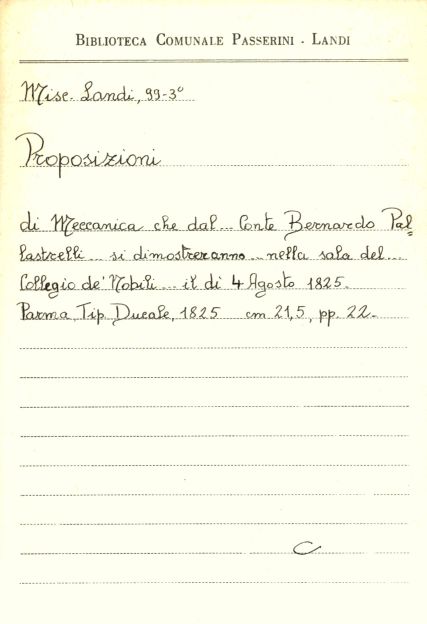 BIBLIOTECA COMUNALE PASSERINI - LANDI
Misc. Landi, 99-3°
Proposizioni
di Meccanica che dal... Conte Bernardo Pal=
lastrelli... si dimostreranno... nella sala del...
Collegio de' Nobili... il dì 4 Agosto 1825.
Parma, Tip. Ducale, 1825 cm 21,5, pp. 22.
C